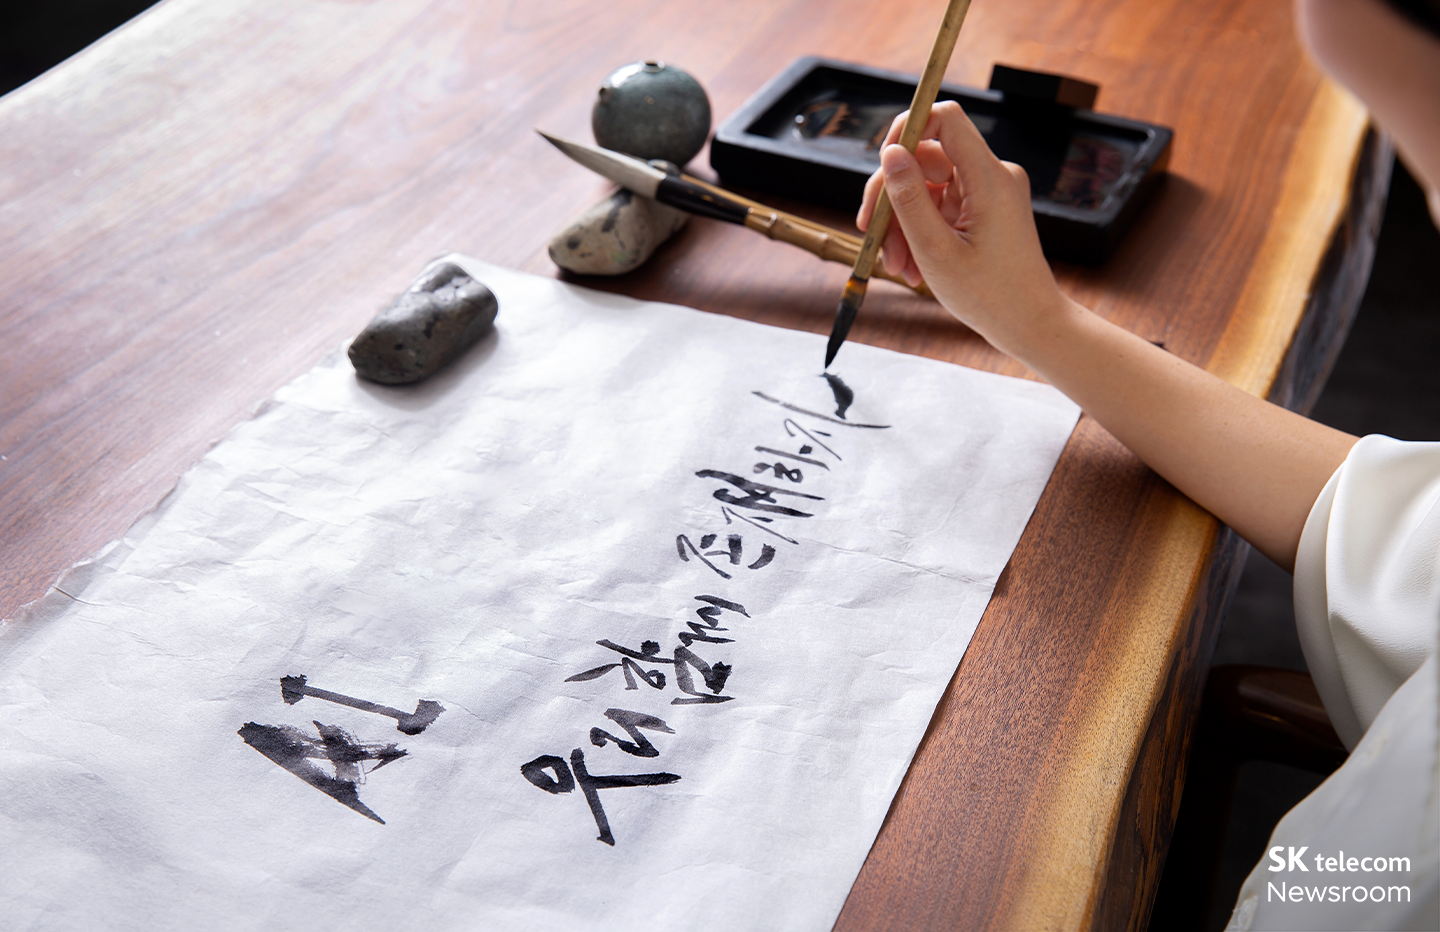 AI
우리 함께 존재하자
SK telecom
Newsroom